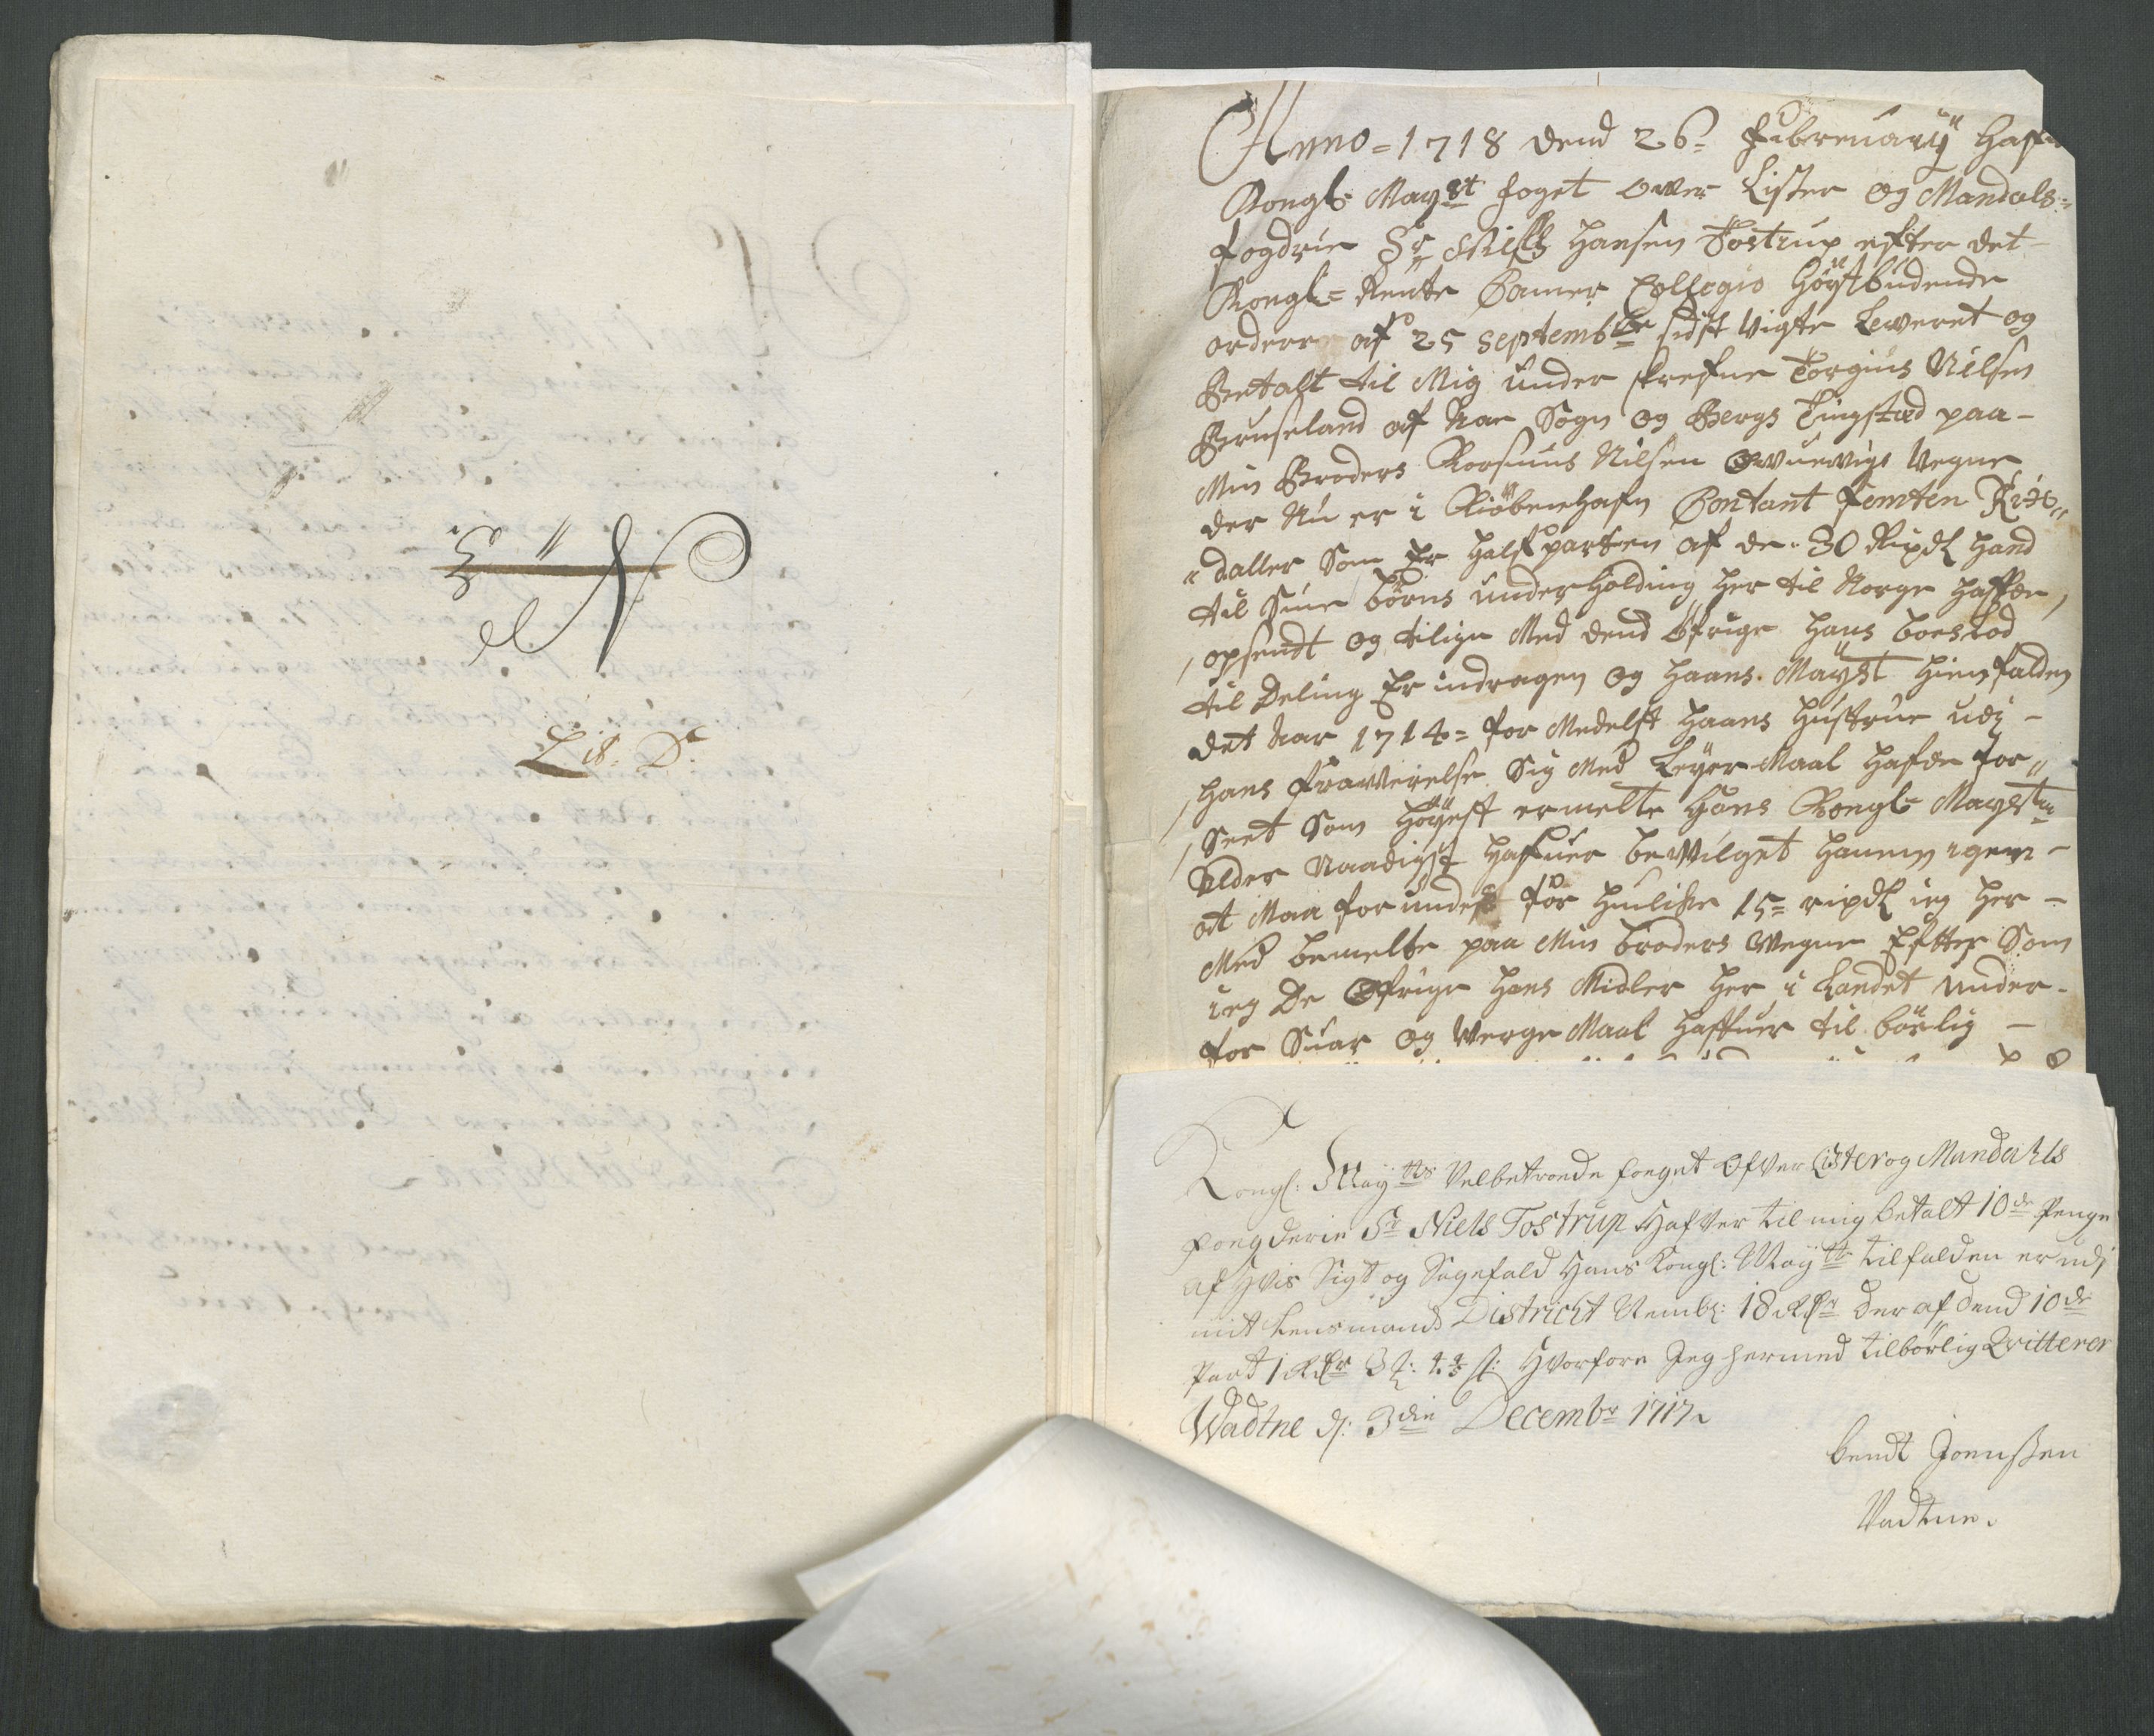 N 3
Lit. D.
Anno = 1718 dend 26 = Februarÿ Hafr
Kongl: Mayst foget ower Lister og Mandals=
fogdrie Sr Nilss Hansen Tostrup efter det
Kongl = Rente Camer Collegio Höyst budende
orderr af 25 septembr sidst Leweret og
Betalt til Mig under skrefne Torgius Nilsen
Bruseland af Sogn og Bergs Tingstæd paa
Min Broders Rasmus Nilsen Vegne
der Nu er i Kiöbenhafn Contant femten Rix
daller Som Er Halfparten af de 30 Rixdl Hand
til Sine börns underholding her til Norge Haffr
opsendt og tilige Med dend öfrige Hans boeslod
til Deling Er indragen og Haans Mayst Hiemfalden
det Aar 1714 = for Medelst Haans Hustrue udj
Hans frawærelse Sig Med Leyer Maal Hafr for
Seet Som Höyest ermelte Hans Kongl Mayst
Alder Naadigst Hafuer bewilget Hannem igien
at Maa forundes för Huilke 15 = rixdl ieg Her
Med bemelte paa Min broders Wegne Efter Som
ieg De Öfrige Hans Midler Her i Landet Under
for Suar og Werge Maal Haffuer til börlig
Kongl: May tts Velbetroede foeget Ofver Lister og Mandahls
foegderie Sr Niels Tostrup Hafver til mig betalt 10de Penge
af Hvis Sigt og Sagefald Hans Kongl: May tts tilfalden er udj
mit Lensmands District Nembl: 18 Rdr Der af dend 10de
Part 1 Rdr 3 Hvorfore Jeg hermed tilbörlig Qvitterer
Wadtne d: 3die Decembr 1717
bendt Joenssen
Vadtne.